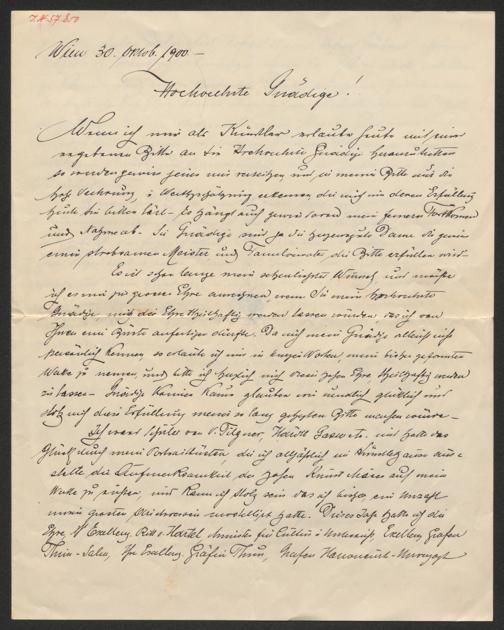 I.N. 57.850
Wien 30. Oktob. 1900.–
Hochverehrte Gnädige!
Wenn ich mir als Künstler erlaube heute mit einer
ergebenen Bitte an Sie Hochverehrte Gnädige heranzutreten
so werden gewiss mir verzeihen und in meine Bitte nur die
hohe Verehrung, Werthschätzung erkennen, die mich um deren Erfüllung
heute Sie bitten lässt. Es hängt auch mein ferneres Fortkommen
und Nahme ab. Sie Gnädige sind ja die herzensgute Dame die gewiss
einem strebsamen Meister und die Bitte erfüllen wird.–
Es ist schon lange mein sehnlichster Wunsch, und müsste
ich es mir zur grossen Ehre anrechnen, wenn Sie mein hochverehrte
Gnädige, mich die Ehre theilhaftig werden lassen würden das ich von
Ihnen eine Büste anfertigen dürfte. Da mich mein Gnädige vielleicht nicht
persönlich kennen, so erlaube ich mir in kurzen Worten, meine bisher geformten
Werke zu nennen, und bitte ich herzlich mich dieser hohen Ehre, theilhaftig werden
zu lassen.– Gnädige können kaum glauben wie unendlich glücklich und
stolz mich die Erfüllung meiner so lang gehegten Bitte machen würde.–
Ich war Schüler von V. Tilgner, und hatte das
Glück durch mein Portraitbüsten die ich alljährlich im Künstlerhaus aus=
stelle die Aufmerksamkeit der hohen Kunst auf mein
Werke zu ziehen, und kann ich stolz sein das ich bisher, eine Anzahl
modelliert hatte. Dieses Jahr hatte ich die
Ehre, Exellenz Ritt. v. Hartel Minister für Cultus u Unterricht, Exellenz Grafen
Thun-Salm, Ihre Exellenz Gräfin Thun, Grafen Harnoncourt-Unverzagt